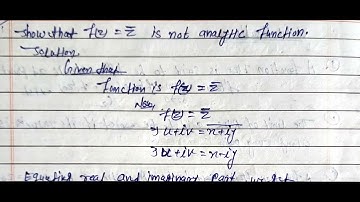 Show that f(z) = z̅ is not analytic function.
Solution.
Given that
function is f(z) = z̅
Now,
f(z) = z̅
⇒ u+iv = \overline{x+iy}
⇒ u+iv = x-iy
Equating real and imaginary part, we get